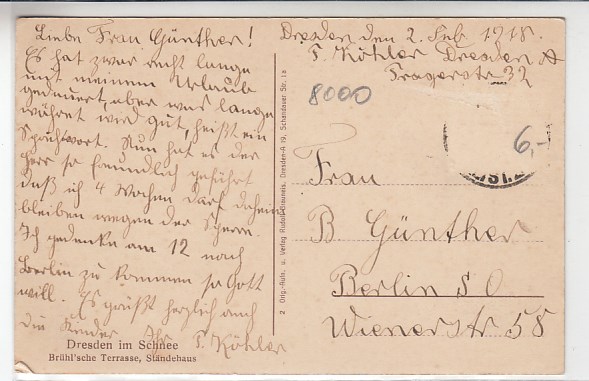 Liebe Frau Günther!
Es hat zwar recht lange
mit meinem Urlaub
gedauert, aber was lange
währet wird gut, heißt ein
Sprichwort. Nun hat es der
Herr so freundlich geführt
daß ich 4 Wochen darf daheim
bleiben wegen der Sperre.
Ich gedenke am 12 nach
Berlin zu kommen so Gott
will. Es grüßt herzlich auch
die Kinder Ihr T. Köhler
Dresden im Schnee
Brühl'sche Terrasse, Ständehaus
2 Orig.-Aufn. u. Verlag Rudolf Dresden-A 19, Schandauer Str. 12
Dresden den 2. Feb. 1918.
T. Köhler Dresden A
Pragerstr 32
8000
6,-
Frau
B Günther
Berlin S O
Wienerstr 58